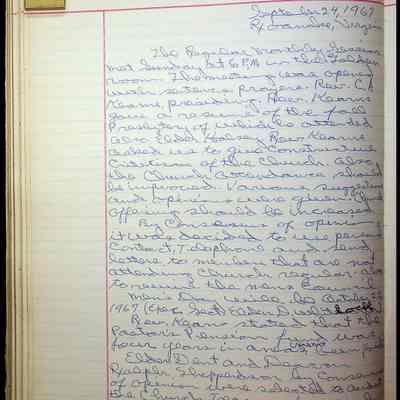 September 24, 1967
Alexandria, Virginia
The Regular Monthly Session
met Sunday, at 6 P.M. in the Ladder
room. The meeting was opened
with sentence prayers. Rev. C.
Kearns, presiding. Rev. Kearns
gave a resume of the fall
Presbytery of which he attended
also Elder Kelsey. Rev. Kearns
asked us to give Constructive
Criticism of the Church also
the Church Attendance should
be improved. Various suggestions
and opinions were given.
offering should be increased
By Consensus of opinion
it was decided to use personal
Contact, Telephone and send
letters to members that are not
attending Church regular. also
to revive the mens Council
Men's Day will be October
1967 Elder Dent
Rev. Kearns stated that the
Pastor's Pension fund was
four years in arears,
Elder Dent and Deacon
Ralph Shepperson by Consensus
of opinion were selected to
the Church